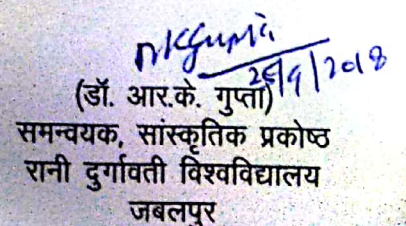 RKGupta
26/9/2018
(डॉ. आर.के. गुप्ता)
समन्वयक, सांस्कृतिक प्रकोष्ठ
रानी दुर्गावती विश्वविद्यालय
जबलपुर